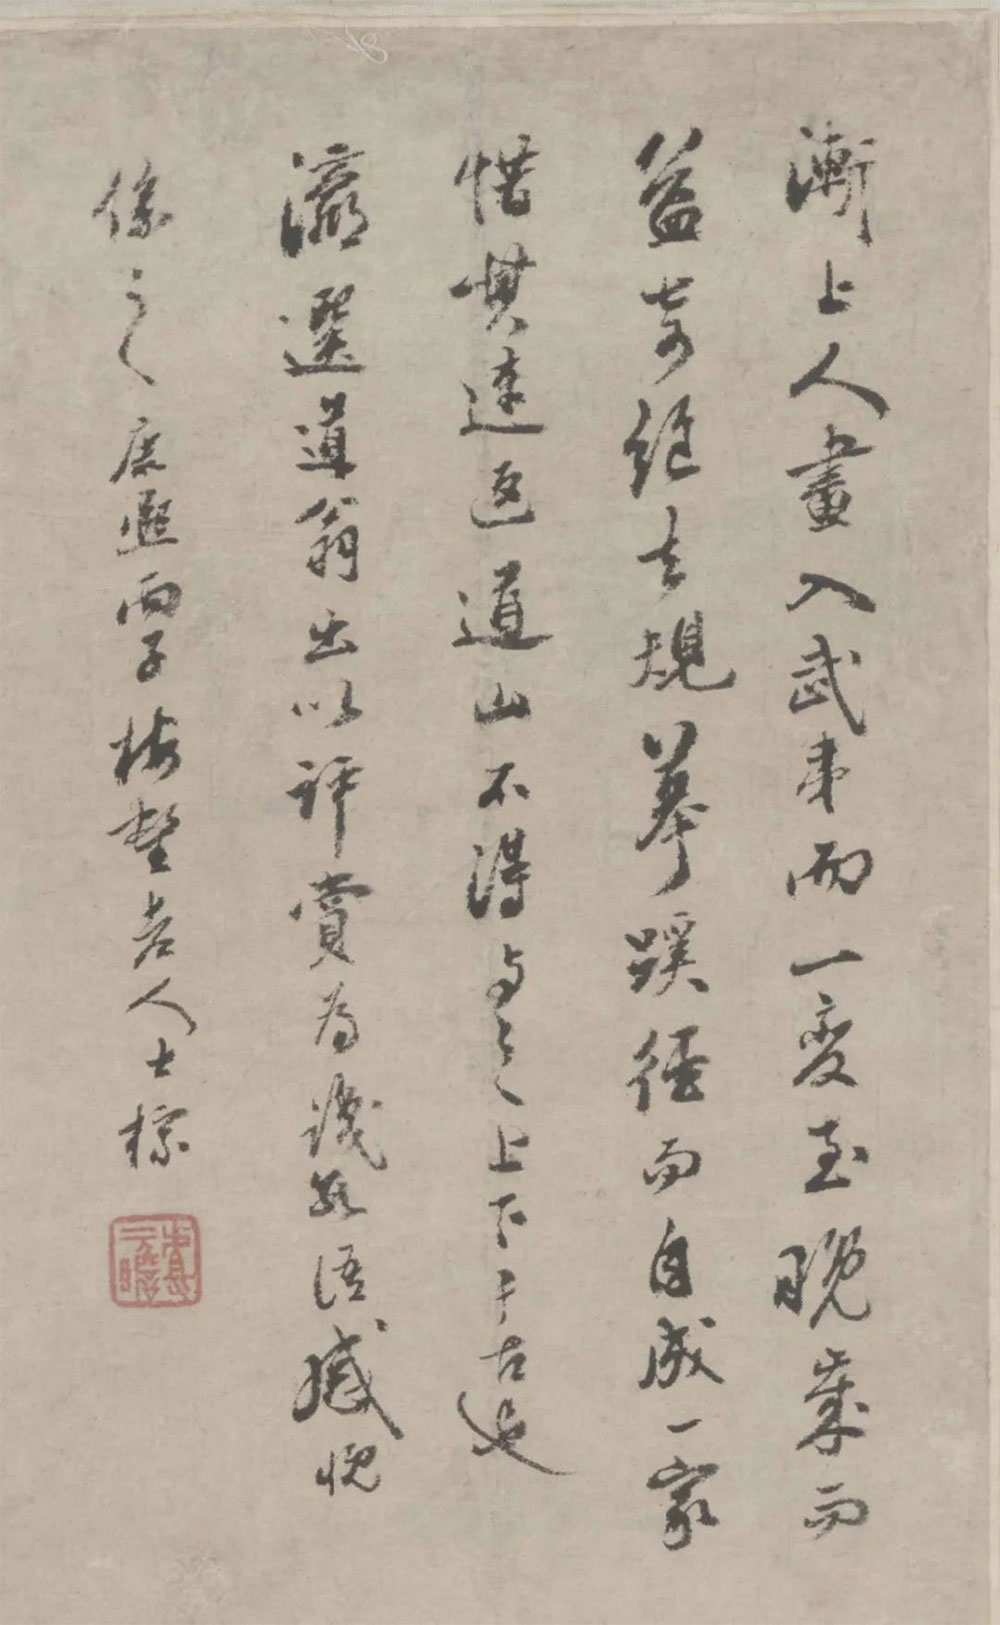 漸上人畫入武夷而一變至晚歲而
益奇絕去規摹蹊徑而自成一家
惜其速返道山不得与之上下千古也
瀛選道翁出以評賞為識數語感慨
係之康熙丙子梅壑老人士標